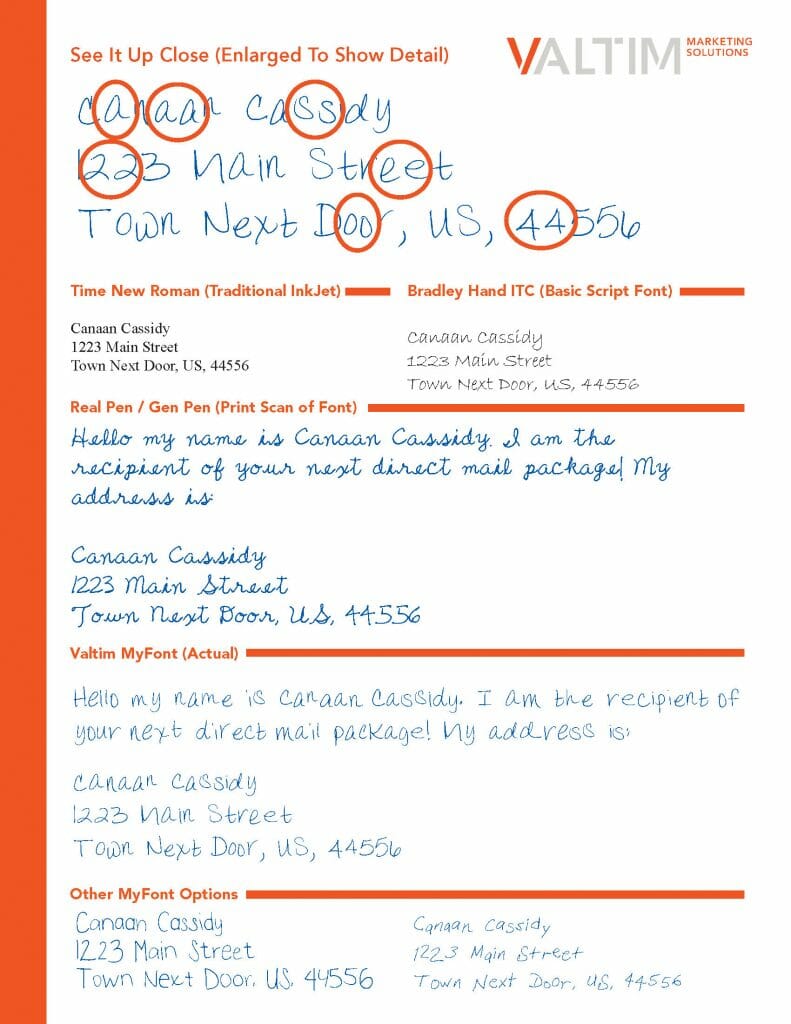 See It Up Close (Enlarged To Show Detail)
VALTIM MARKETING SOLUTIONS
Canaan Cassidy
1223 Main Street
Town Next Door, US, 44556
Time New Roman (Traditional InkJet)
Canaan Cassidy
1223 Main Street
Town Next Door, US, 44556
Bradley Hand ITC (Basic Script Font)
Canaan Cassidy
1223 Main Street
Town Next Door, US, 44556
Real Pen / Gen Pen (Print Scan of Font)
Hello my name is Canaan Cassidy. I am the
recipient of your next direct mail package! My
address is:
Canaan Cassidy
1223 Main Street
Town Next Door, US, 44556
Valtim MyFont (Actual)
Hello my name is Canaan Cassidy. I am the recipient of
your next direct mail package! My address is:
Canaan Cassidy
1223 Main Street
Town Next Door, US, 44556
Other MyFont Options
Canaan Cassidy
1223 Main Street
Town Next Door, US, 44556
Canaan Cassidy
1223 Main Street
Town Next Door, US, 44556